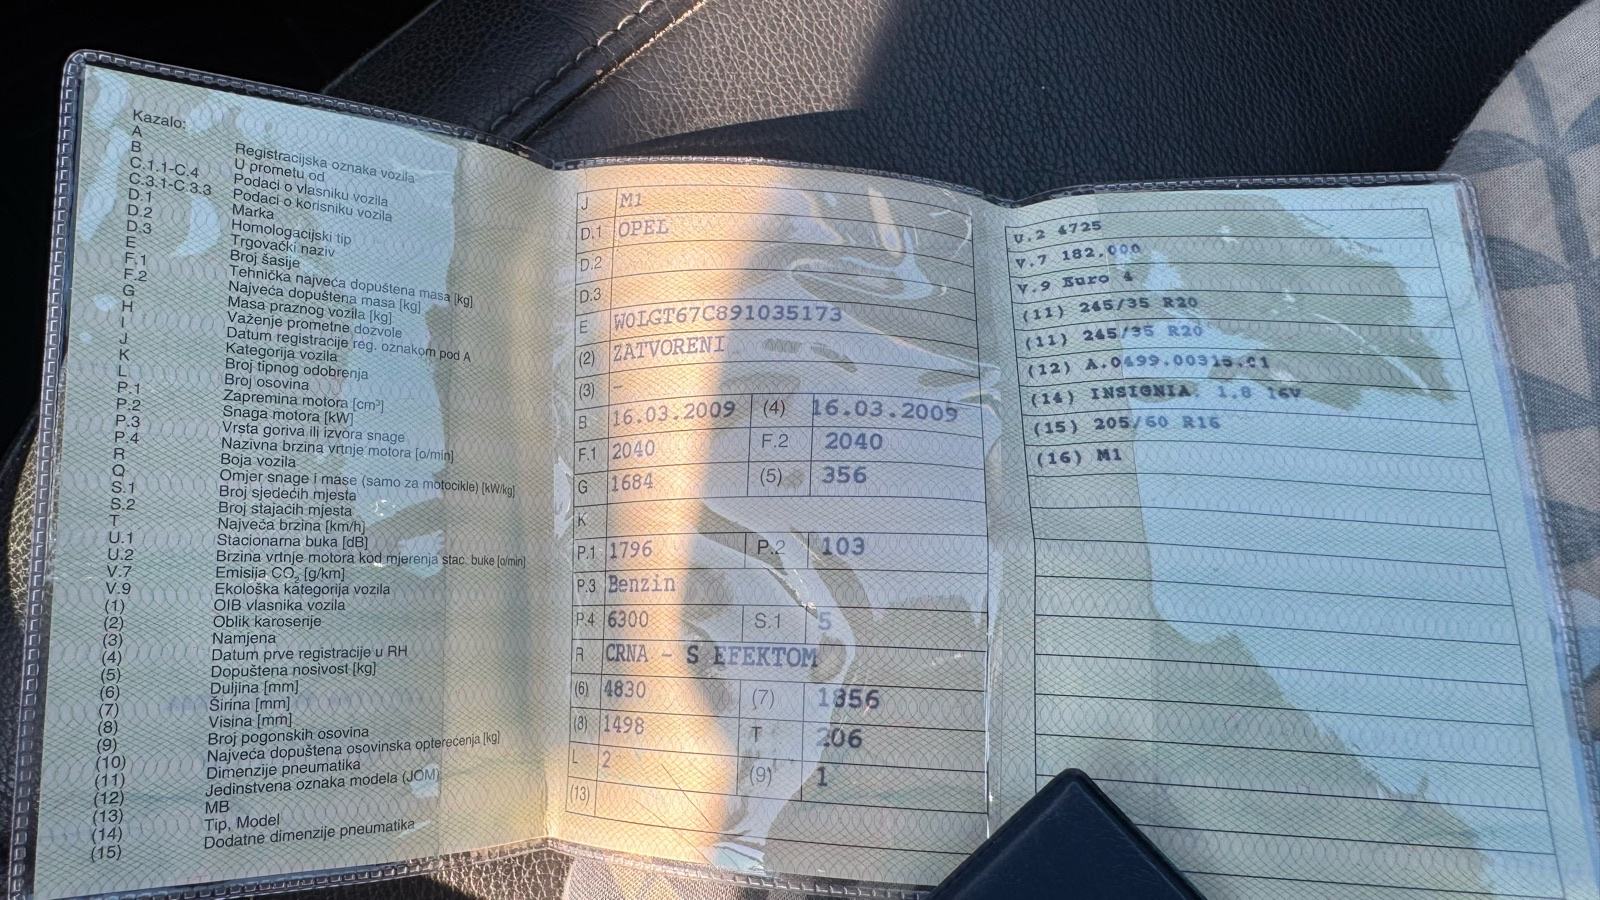 Kazalo:
A Registracijska oznaka vozila
B U prometu od
C.1.1-C.4 Podaci o vlasniku vozila
C.3.1-C.3.3 Podaci o korisniku vozila
D.1 Marka
D.2 Homologacijski tip
D.3 Trgovački naziv
E Broj šasije
F.1 Tehnička najveća dopuštena masa [kg]
F.2 Najveća dopuštena masa [kg]
G Masa praznog vozila [kg]
H Važenje prometne dozvole
I Datum registracije reg. oznakom pod A
J Kategorija vozila
K Broj tipnog odobrenja
L Broj osovina
P.1 Zapremina motora [cm³]
P.2 Snaga motora [kW]
P.3 Vrsta goriva ili izvora snage
P.4 Nazivna brzina vrtnje motora [o/min]
R Boja vozila
Q Omjer snage i mase (samo za motocikle) [kW/kg]
S.1 Broj sjedećih mjesta
S.2 Broj stajaćih mjesta
T Najveća brzina [km/h]
U.1 Stacionarna buka [dB]
U.2 Brzina vrtnje motora kod mjerenja stac. buke [o/min]
V.7 Emisija CO₂ [g/km]
V.9 Ekološka kategorija vozila
(1) OIB vlasnika vozila
(2) Oblik karoserije
(3) Namjena
(4) Datum prve registracije u RH
(5) Dopuštena nosivost [kg]
(6) Duljina [mm]
(7) Širina [mm]
(8) Visina [mm]
(9) Broj pogonskih osovina
(10) Najveća dopuštena osovinska opterećenja [kg]
(11) Dimenzije pneumatika
(12) Jedinstvena oznaka modela (JOM)
(13) MB
(14) Tip, Model
(15) Dodatne dimenzije pneumatika
J M1
D.1 OPEL
D.2
D.3
E W0LGT67C891035173
(2) ZATVORENI
(3) –
B 16.03.2009 (4) 16.03.2009
F.1 2040 F.2 2040
G 1684 (5) 356
K
P.1 1796 P.2 103
P.3 Benzin
P.4 6300 S.1 5
R CRNA - S EFEKTOM
(6) 4830 (7) 1856
(8) 1498 T 206
L 2 (9) 1
(13)
U.2 4725
V.7 182,000
V.9 Euro 4
(11) 245/35 R20
(11) 245/35 R20
(12) A.0499.00315.01
(14) INSIGNIA, 1.8 16V
(15) 205/60 R16
(16) M1